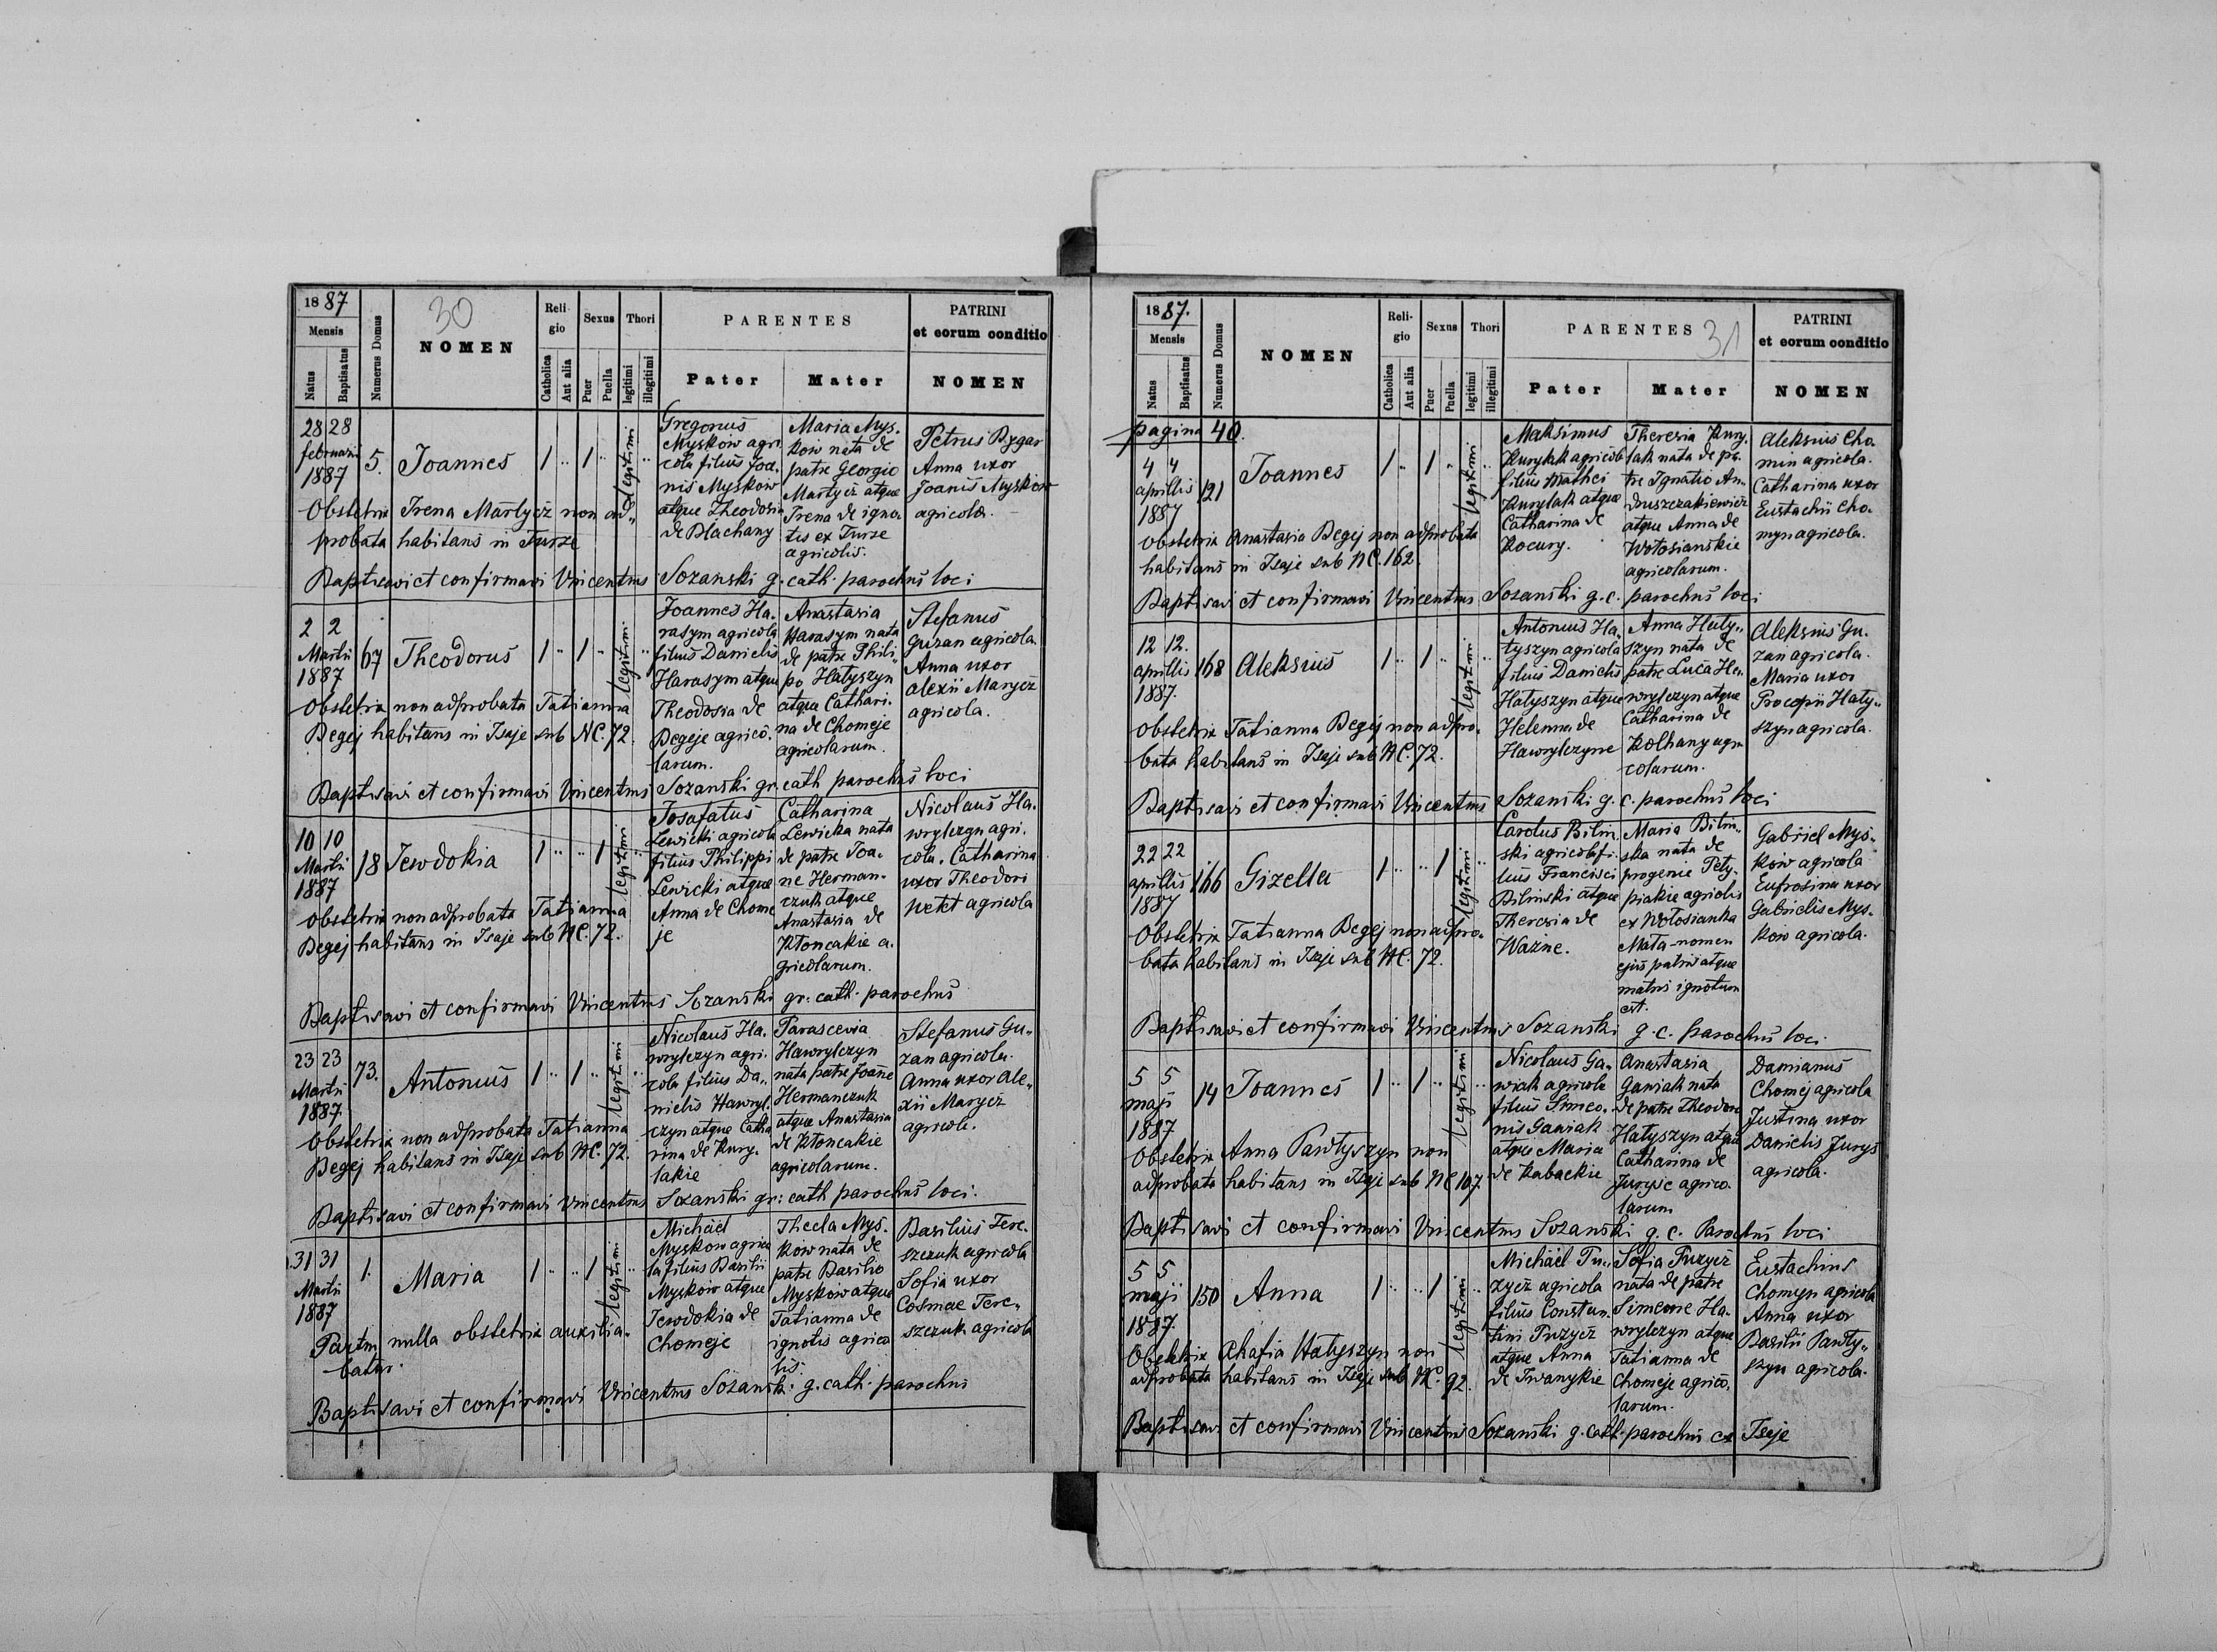 1887
30
Mensis
Natus
Baptisatus
Numerus Domus
NOMEN
Reli-
gio
Catholica
Aut alia
Sexus
Puer
Puella
Thori
legitimi
illegitimi
PARENTES
Pater
Mater
PATRINI
et eorum conditio
NOMEN
28 28
februarii
1887
5.
Joannes
1 .. 1 ..
legitimi
Gregorius
Myśków agri
cola filius Joa.
nis Myśków
atque Theodosia
de Blachany
Maria Myś.
ków nata de
patre Georgio
Martycz atque
Irena de igno.
tis ex Turze
agricolis.
Petrus Bygar
Anna uxor
Joanis Myśków
agricola.
Obstetrix Irena Martycz non ad„
probata habitans in Turze
Baptisavi et confirmavi Vincentius Sozański g. cath. parochus loci
2 2
Martii
1887
67
Theodorus
1 .. 1 ..
legitimi
Joannes Ha.
rasym agricola
filius Danielis
Harasym atque
Theodosia de
Begeje agrico.
larum.
Anastasia
Harasym nata
de patre Phili„
po Hatyszyn
atque Cathari.
na de Chomeje
agricolarum.
Stefanus
Guzan agricola.
Anna uxor
Alexii Marycz
agricola.
Obstetrix non adprobata Tatianna
Begej habitans in Isaje sub NC. 72.
Baptisavi et confirmavi Vincentius Sozanski gr. cath parochus loci
10 10
Martii
1887
18
Jewdokia
1 .. .. 1
legitimi
Josafatus
Lewicki agricola
filius Philippi
Lewicki atque
Anna de Chome
je
Catharina
Lewicka nata
de patre Joa.
ne Herman.
czuk atque
Anastasia de
Kłoncakie a.
gricolarum.
Nicolaus Ha.
wrylczyn agri.
cola. Catharina
uxor Theodori
Netet agricola
Obstetrix non adprobata Tatianna
Begej habitans in Isaje sub NC. 72.
Baptisavi et confirmavi Vincentius Sozański gr: cath. parochus
23 23
Martii
1887.
73.
Antonius
1 .. 1 ..
legitimi
Nicolaus Ha.
wrylczyn agri.
cola filius Da„
nielis Hawryl.
czyn atque Catha
rina de Kury.
lakie
Parascevia
Hawrylczyn
nata patre Joane
Hermanczuk
atque Anastasia
de Kłoncakie
agricolarum.
Stefanus Gu„
zan agricola.
Anna uxor Ale„
xii Marycz
agricole.
Obstetrix non adprobata Tatianna
Begej habitans in Isaje sub NC. 72.
Baptisavi et confirmavi Vincentius Sozanski gr: cath parochus loci.
31 31
Martii
1887
1.
Maria
1 .. .. 1
legitimi
Michael
Myśkow agrico
la filius Basilii
Myśków atque
Jewdokia de
Chomeje
Thecla Myś.
ków nata de
patre Basilio
Myśkow atque
Tatianna de
ignotis agrico
lis.
Basilius Tere.
szczuk agricola
Sofia uxor
Cosmae Tere„
szczuk agricola
Partui nulla obstetrix auxilia.
batur.
Baptisavi et confirmavi Vincentius Sozański g. cath. parochus
1887.
31
Mensis
Natus
Baptisatus
Numerus Domus
NOMEN
Reli-
gio
Catholica
Aut alia
Sexus
Puer
Puella
Thori
legitimi
illegitimi
PARENTES
Pater
Mater
PATRINI
et eorum conditio
NOMEN
pagina 40.
4 4
aprillis
1887
121
Joannes
1 .. 1 ..
legitimi
Maksimus
Kurylak agricola
filius Mathei
Kurylak atque
Catharina de
Kocury.
Theresia Kury.
lak nata de pa.
tre Ignatio An.
druszczakiewicz
atque Anna de
Wołosiańskie
agricolarum.
Aleksius Cho.
min agricola.
Catharina uxor
Eustachii Cho.
myn agricola.
Obstetrix Anastasia Begej non adprobata
habitans in Isaje sub NC. 162.
Baptisavi et confirmavi Vincentius Sozański g. c. parochus loci
12 12.
aprillis
1887.
168
Aleksius
1 .. 1 ..
legitimi
Antonius Ha.
tyszyn agricola
filius Danielis
Hatyszyn atque
Helenna de
Hawrylczyne
Anna Haty„
szyn nata de
patre Luca Ha.
wrylczyn atque
Catharina de
Kolhany agri
colarum.
Aleksius Gu.
zan agricola.
Maria uxor
Procopii Haty„
szyn agricola.
Obstetrix Tatianna Begej non adpro.
bata habitans in Isaje sub NC. 72.
Baptisavi et confirmavi Vincentius Sozanski g. c. parochus loci
22 22
aprillis
1887
166
Gizella
1 .. .. 1
legitimi
Carolus Bilin.
ski agricola fi.
lius Francisci
Bilinski atque
Theresia de
Ważne.
Maria Bilin„
ska nata de
progenie Pety.
piakie agricolis
ex Wołosianka
Mała-nomen
ejus patris atque
matris ignotum
est.
Gabriel Myś.
ków agricola
Eufrosina uxor
Gabrielis Myś.
ków agricola.
Obstetrix Tatianna Begej non adpro.
bata habitans in Isaje sub NC. 72.
Baptisavi et confirmavi Vincentius Sozański g. c. parochus loci.
5 5
maji
1887
14
Joannes
1 .. 1 ..
legitimi
Nicolaus Ga„
wiak agricola
filius Simeo.
nis Gawiak
atque Maria
de Kabackie
Anastasia
Gawiak nata
de patre Theodoro
Hatyszyn atque
Catharina de
Juryse agrico.
larum
Damianus
Chomej agricola
Justina uxor
Danielis Jurys
agricola.
Obstetrix Anna Pawłyszyn non
adprobata habitans in Isaje sub NC 107.
Baptisavi et confirmavi Vincentius Sozanski g. c. Parochus loci
5 5
maji
1887.
150
Anna
1 .. .. 1
legitimi
Michael Pu„
zycz agricola
filius Constan.
tini Puzycz
atque Anna
de Iwanykie
Sofia Puzycz
nata de patre
Simeone Ha.
wrylczyn atque
Tatianna de
Chomeje agrico.
larum.
Eustachius
Chomyn agricola
Anna uxor
Basilii Pawły„
szyn agricola.
Obstetrix Ahafia Hatyszyn non
adprobata habitans in Isaje sub NC. 92.
Baptisavi et confirmavi Vincentius Sozanski g. cath. parochus ex Isaje